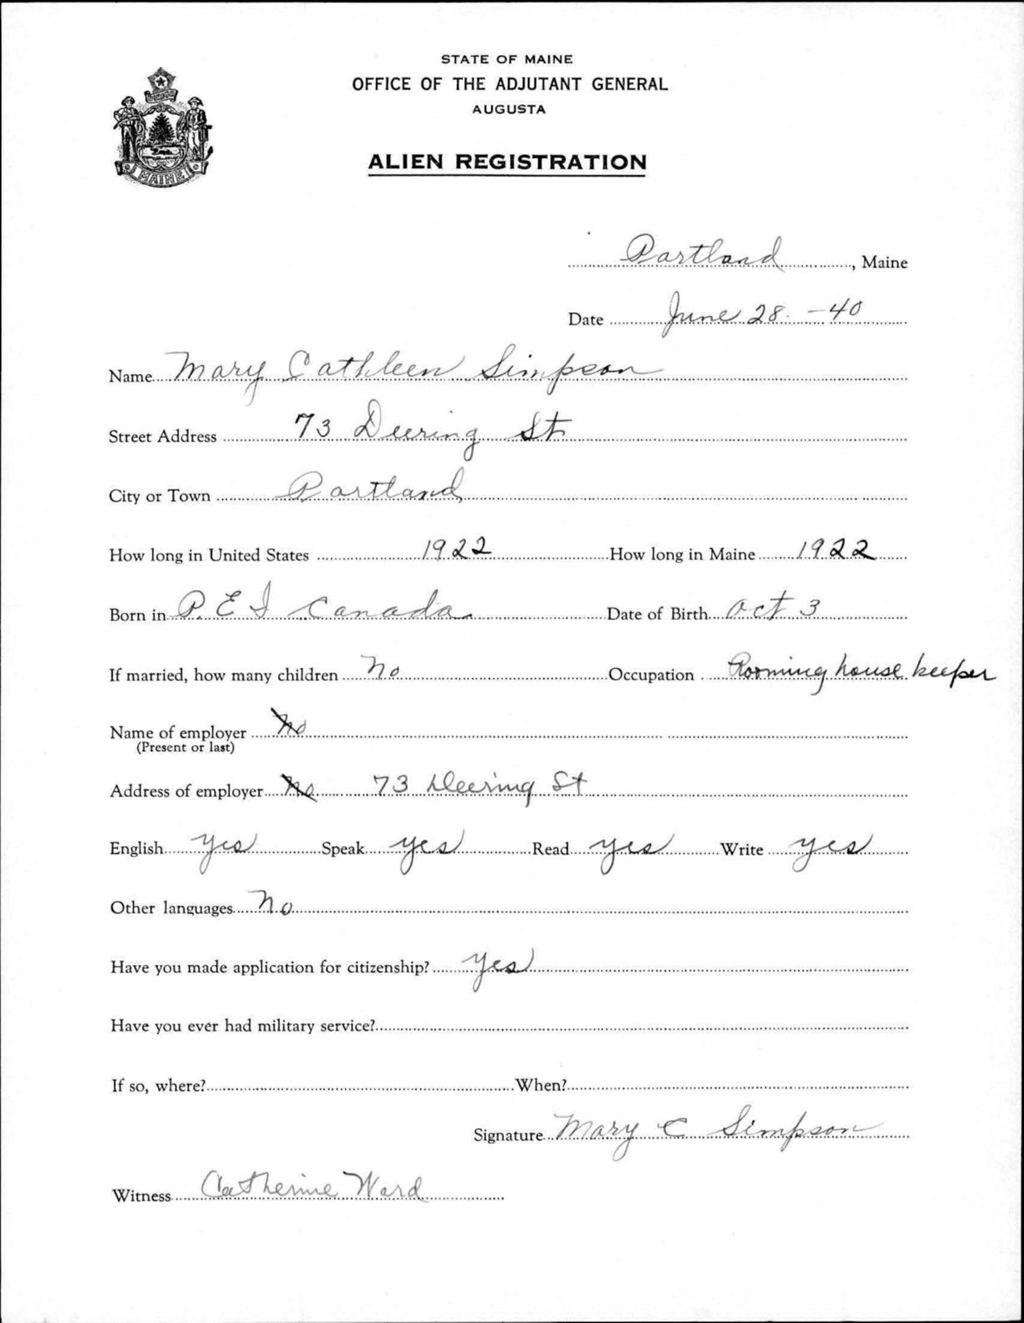 STATE OF MAINE
OFFICE OF THE ADJUTANT GENERAL
AUGUSTA
ALIEN REGISTRATION
MAINE
Portland, Maine
Date June 28 - 40
Name Mary Cathleen Simpson
Street Address 73 Deering St
City or Town Portland
How long in United States 1922 How long in Maine 1922
Born in P. E I Canada Date of Birth Oct 3
If married, how many children No Occupation Rooming house keeper
Name of employer No
(Present or last)
Address of employer No 73 Deering St
English yes Speak yes Read yes Write yes
Other languages No
Have you made application for citizenship? Yes
Have you ever had military service?
If so, where? When?
Signature Mary C Simpson
Witness Catherine Ward